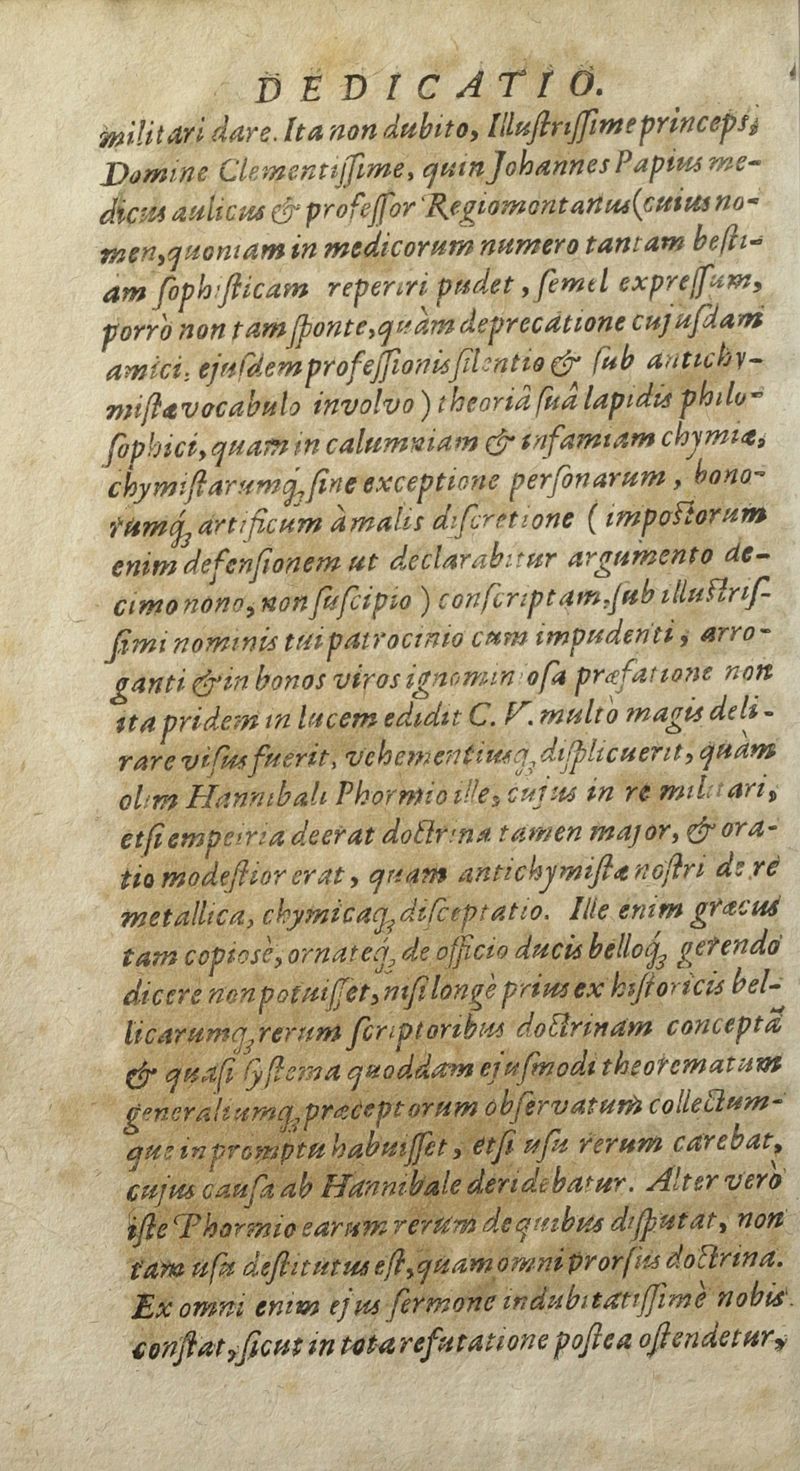 DEDICATIO.
militari dare. Ita non dubito, Illustrissime princeps,
Domine Clementissime, quin Johannes Papius me-
dicus aulicus & professor Regiomontanus (cuius no-
men, quoniam in medicorum numero tantam besti-
am sophisticam reperiri pudet, semel expressum,
porrò non tam sponte, quàm deprecatione cujusdam
amici, ejusdem professionis silentio & sub antichy-
mistæ vocabulo involvo) theoriâ suâ lapidis philo-
sophici, quam in calumniam & infamiam chymiæ,
chymistarumq; sine exceptione personarum, bono-
rumq; artificum à malis discretione (impostorum
enim defensionem ut declarabitur argumento de-
cimo nono, non suscipio) conscriptam, sub illustris-
simi nominis tui patrocinio cum impudenti, arro-
ganti & in bonos viros ignominiosa præfatione non
ita pridem in lucem edidit C. V. multò magis deli-
rare visus fuerit, vehementiusq; displicuerit, quàm
olim Hannibali Phormio ille, cujus in re militari,
etsi empeiria deerat doctrina tamen major, & ora-
tio modestior erat, quam antichymistæ nostri de re
metallica, chymicaq; disceptatio. Ille enim græcus
tam copiosè, ornateq; de officio ducis belloq; gerendo
dicere non potuisset, nisi longè prius ex historicis bel-
licarumq; rerum scriptoribus doctrinam conceptā
& quasi systema quoddam ejusmodi theorematum
generaliumq; præceptorum observatum collectum-
que in promptu habuisset, etsi usu rerum carebat,
cujus causa ab Hannibale deridebatur. Alter verò
iste Phormio earum rerum de quibus disputat, non
tam usu destitutus est, quam omni prorsus doctrina.
Ex omni enim ejus sermone indubitatissimè nobis
constat, sicut in tota refutatione postea ostendetur,